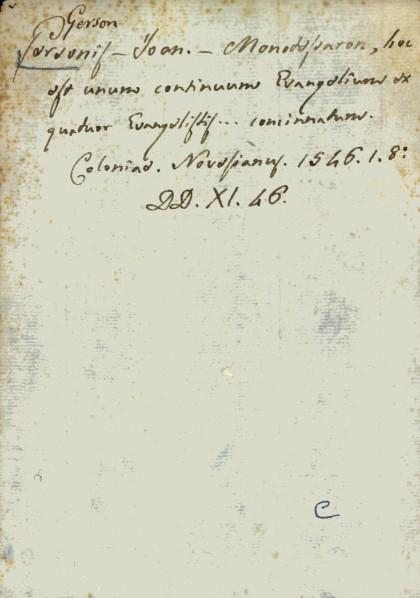 Gerson
Gersonis – Joan. – Monotessaron, hoc
est unum continuum Evangelium ex
quatuor Evangelistis... concinnatum.
Coloniae. Novesianus. 1546. 1. 8:
DD. XI. 46.
C